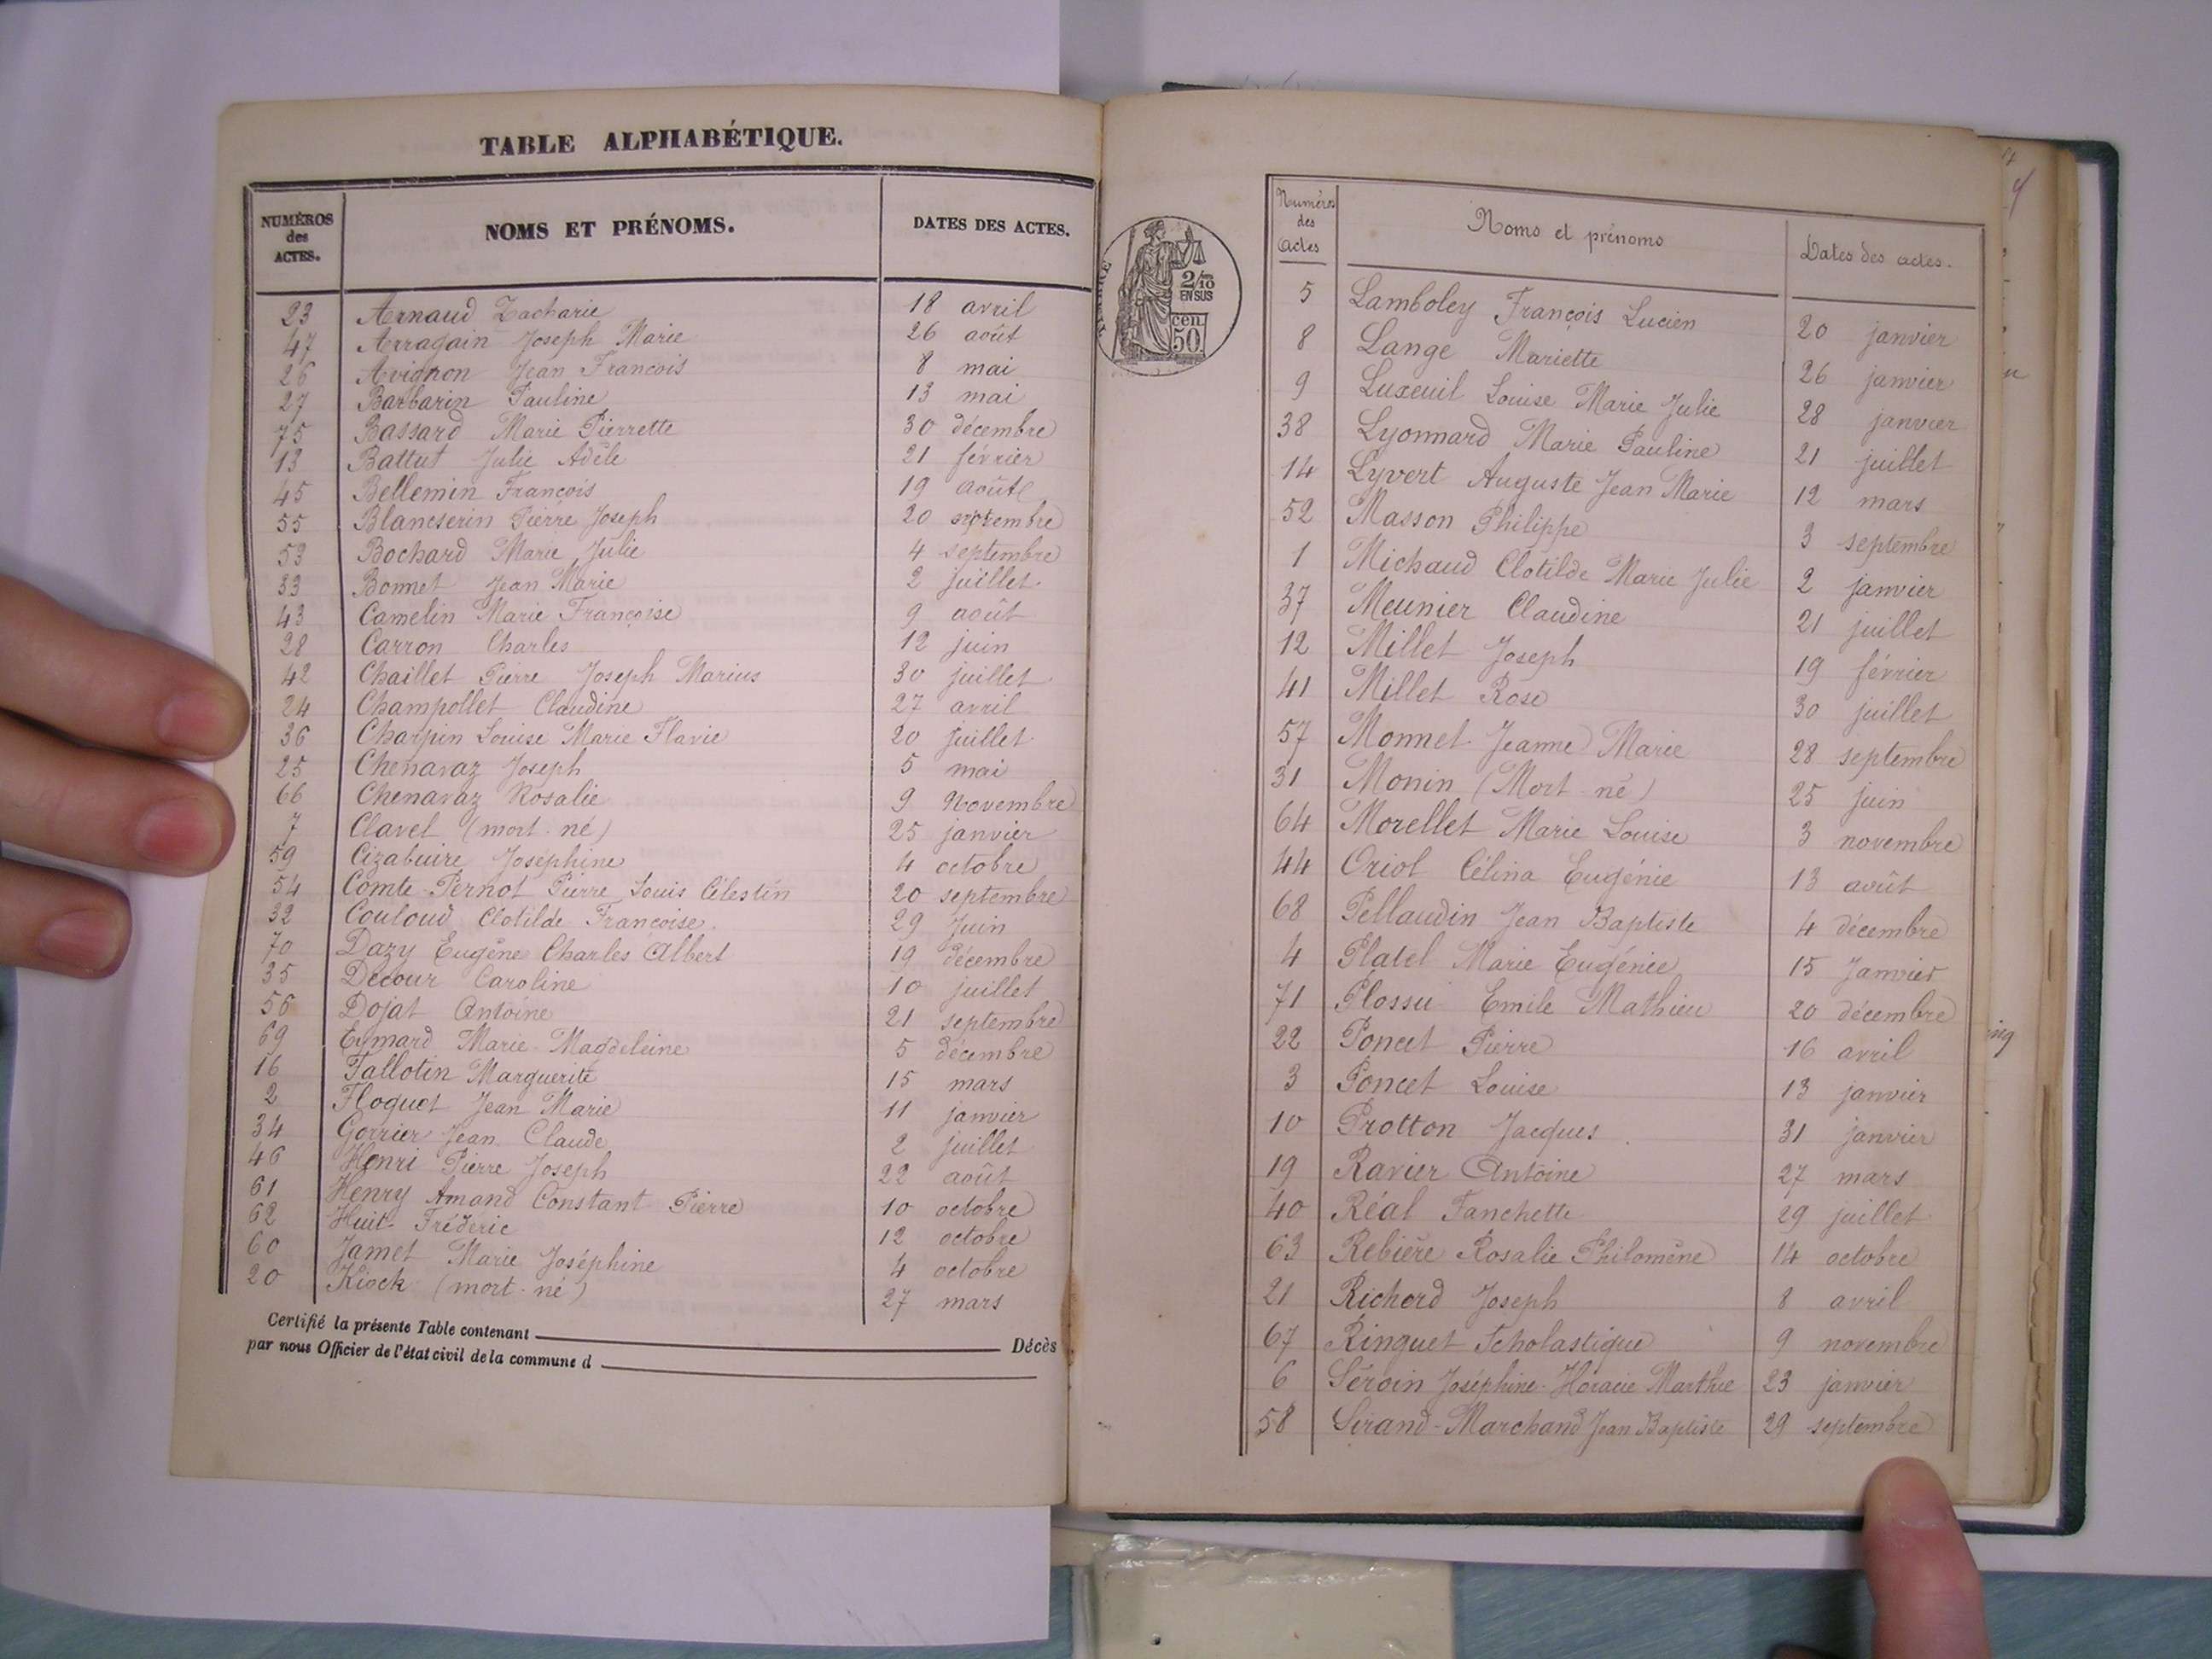 TABLE ALPHABÉTIQUE.
NUMÉROS des ACTES. NOMS ET PRÉNOMS. DATES DES ACTES.
23 Arnaud Zacharie 18 avril
47 Arragain Joseph Marie 26 août
26 Avignon Jean François 8 mai
27 Barbarin Pauline 13 mai
75 Bassard Marie Pierrette 30 décembre
13 Battut Julie Adèle 21 février
45 Bellemin François 19 août
55 Blancserin Pierre Joseph 20 septembre
53 Bochard Marie Julie 4 septembre
33 Bonnet Jean Marie 2 juillet
43 Camelin Marie Françoise 9 août
28 Carron Charles 12 juin
42 Chaillet Pierre Joseph Marius 30 juillet
24 Champollet Claudine 27 avril
36 Charpin Louise Marie Flavie 20 juillet
25 Chenavaz Joseph 5 mai
66 Chenavaz Rosalie 9 Novembre
7 Clavel (mort-né) 25 janvier
59 Cizabuire Joséphine 4 octobre
54 Comte-Pernot Pierre Louis Célestin 20 septembre
32 Couloud Clotilde Françoise. 29 Juin
70 Dazy Eugène Charles Albert 19 décembre
35 Decour Caroline 10 juillet
56 Dojat Antoine 21 septembre
69 Eymard Marie Magdeleine 5 décembre
16 Fallotin Marguerite 15 mars
2 Floquet Jean Marie 11 janvier
34 Gorrier Jean Claude 2 juillet
46 Henri Pierre Joseph 22 août
61 Henry Amand Constant Pierre 10 octobre
62 Huit Fréderic 12 octobre
60 Jamet Marie Joséphine 4 octobre
20 Kiock (mort-né) 27 mars
Certifié la présente Table contenant Décès
par nous Officier de l'état civil de la commune d
2/10 EN SUS
cen. 50
Numéros des Actes Noms et prénoms Dates des actes.
5 Lamboley François Lucien 20 janvier
8 Lange Mariette 26 janvier
9 Luxeuil Louise Marie Julie 28 janvier
38 Lyonnard Marie Pauline 21 juillet
14 Lyvert Auguste Jean Marie 12 mars
52 Masson Philippe 3 septembre
1 Michaud Clotilde Marie Julie 2 janvier
37 Meunier Claudine 21 juillet
12 Millet Joseph 19 février
41 Millet Rose 30 juillet
57 Monnet Jeanne Marie 28 septembre
31 Monin (Mort-né) 25 juin
64 Morellet Marie Louise 3 novembre
44 Oriol Célina Eugénie 13 août
68 Pellaudin Jean Baptiste 4 décembre
4 Platel Marie Eugénie 15 Janvier
71 Plossu Emile Mathieu 20 décembre
22 Poncet Pierre 16 avril
3 Poncet Louise 13 janvier
10 Protton Jacques. 31 janvier
19 Ravier Antoine 27 mars
40 Réal Fanchette 29 juillet
63 Rebière Rosalie Philomène 14 octobre
21 Richerd Joseph 8 avril
67 Ringuet Scholastique 9 novembre
6 Séroin Joséphine Horacie Marthe 23 janvier
58 Sirand-Marchand Jean Baptiste 29 septembre